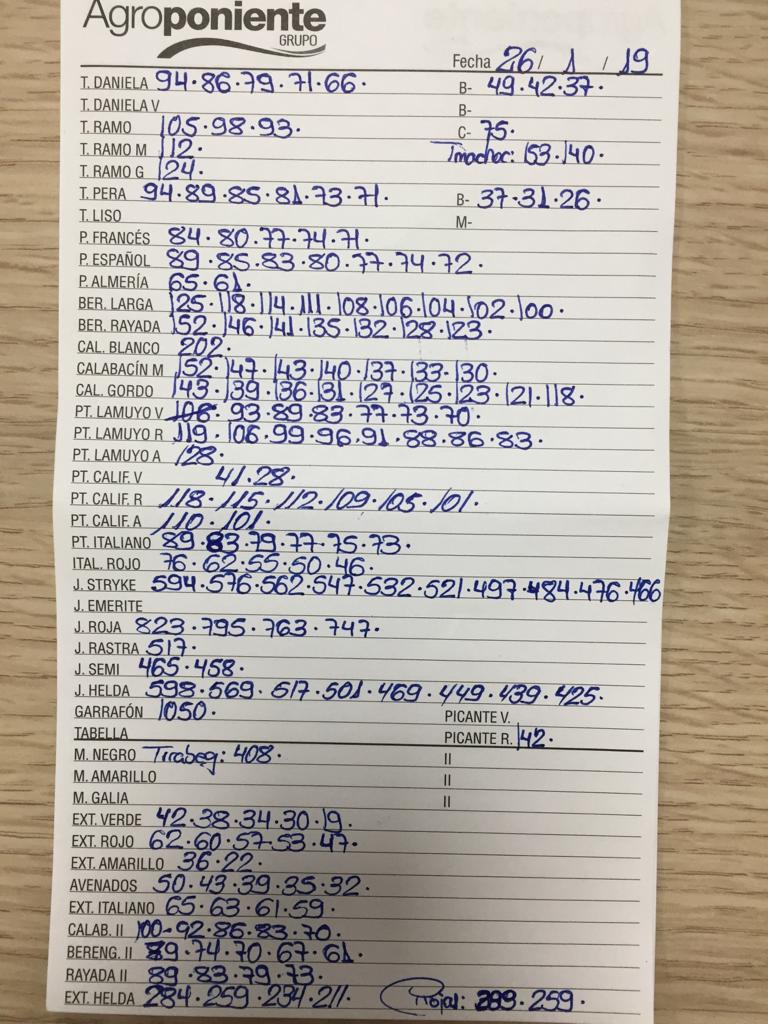 Agroponiente
GRUPO
Fecha 26/ 1 / 19
T. DANIELA 94.86.79.71.66. B- 49.42.37.
T. DANIELA V B-
T. RAMO 105.98.93. C- 75.
T. RAMO M 112. Tmochoc: 153.140.
T. RAMO G 124.
T. PERA 94.89.85.81.73.71. B- 37.31.26.
T. LISO M-
P. FRANCÉS 84.80.77.74.71.
P. ESPAÑOL 89.85.83.80.77.74.72.
P. ALMERÍA 65.61.
BER. LARGA 125.118.114.111.108.106.104.102.100.
BER. RAYADA 152.146.141.135.132.128.123.
CAL. BLANCO 202.
CALABACÍN M 152.147.143.140.137.133.130.
CAL. GORDO 143.139.136.131.127.125.123.121.118.
PT. LAMUYO V 93.89.83.77.73.70.
PT. LAMUYO R 119.106.99.96.91.88.86.83.
PT. LAMUYO A 128.
PT. CALIF. V 41.28.
PT. CALIF. R 118.115.112.109.105.101.
PT. CALIF. A 110.101.
PT. ITALIANO 89.83.79.77.75.73.
ITAL. ROJO 76.62.55.50.46.
J. STRYKE 594.576.562.547.532.521.497.484.476.466
J. EMERITE
J. ROJA 823.795.763.747.
J. RASTRA 517.
J. SEMI 465.458.
J. HELDA 598.569.517.501.469.449.439.425.
GARRAFÓN 1050. PICANTE V.
TABELLA PICANTE R. 142.
M. NEGRO Tirabeq: 408. II
M. AMARILLO II
M. GALIA II
EXT. VERDE 42.38.34.30.19.
EXT. ROJO 62.60.57.53.47.
EXT. AMARILLO 36.22.
AVENADOS 50.43.39.35.32.
EXT. ITALIANO 65.63.61.59.
CALAB. II 100-92.86.83.70.
BERENG. II 89.74.70.67.61.
RAYADA II 89.83.79.73.
EXT. HELDA 284.259.234.211. 259.